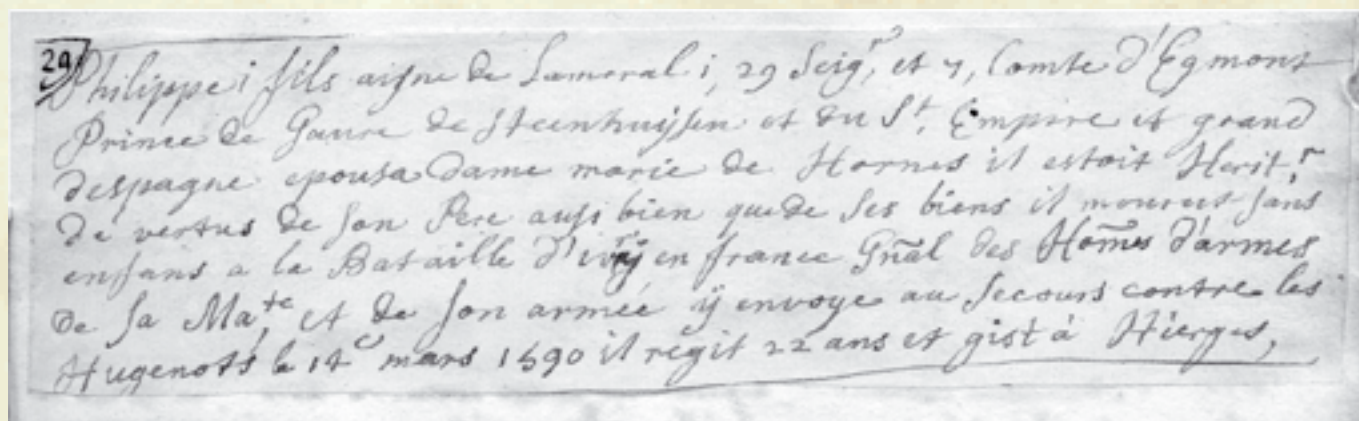 29 Philippe i fils aisne de Lamoral i, 29 Seigr, et 7, Comte d'Egmont
Prince de Gavre de Steenhuijsen et du St. Empire et grand
despagne epousa Dame marie de Hornes il estoit Heritr
de vertus de son Pere aussi bien que de ses biens il mourut sans
enfans a la Bataille d'ivrij en france Gñal des Hom̃es d'armes
de sa Mate, et de son armée ÿ envoye au secours contre les
Hugenots le 14e mars 1590 il regit 22 ans et gist à Hierges,